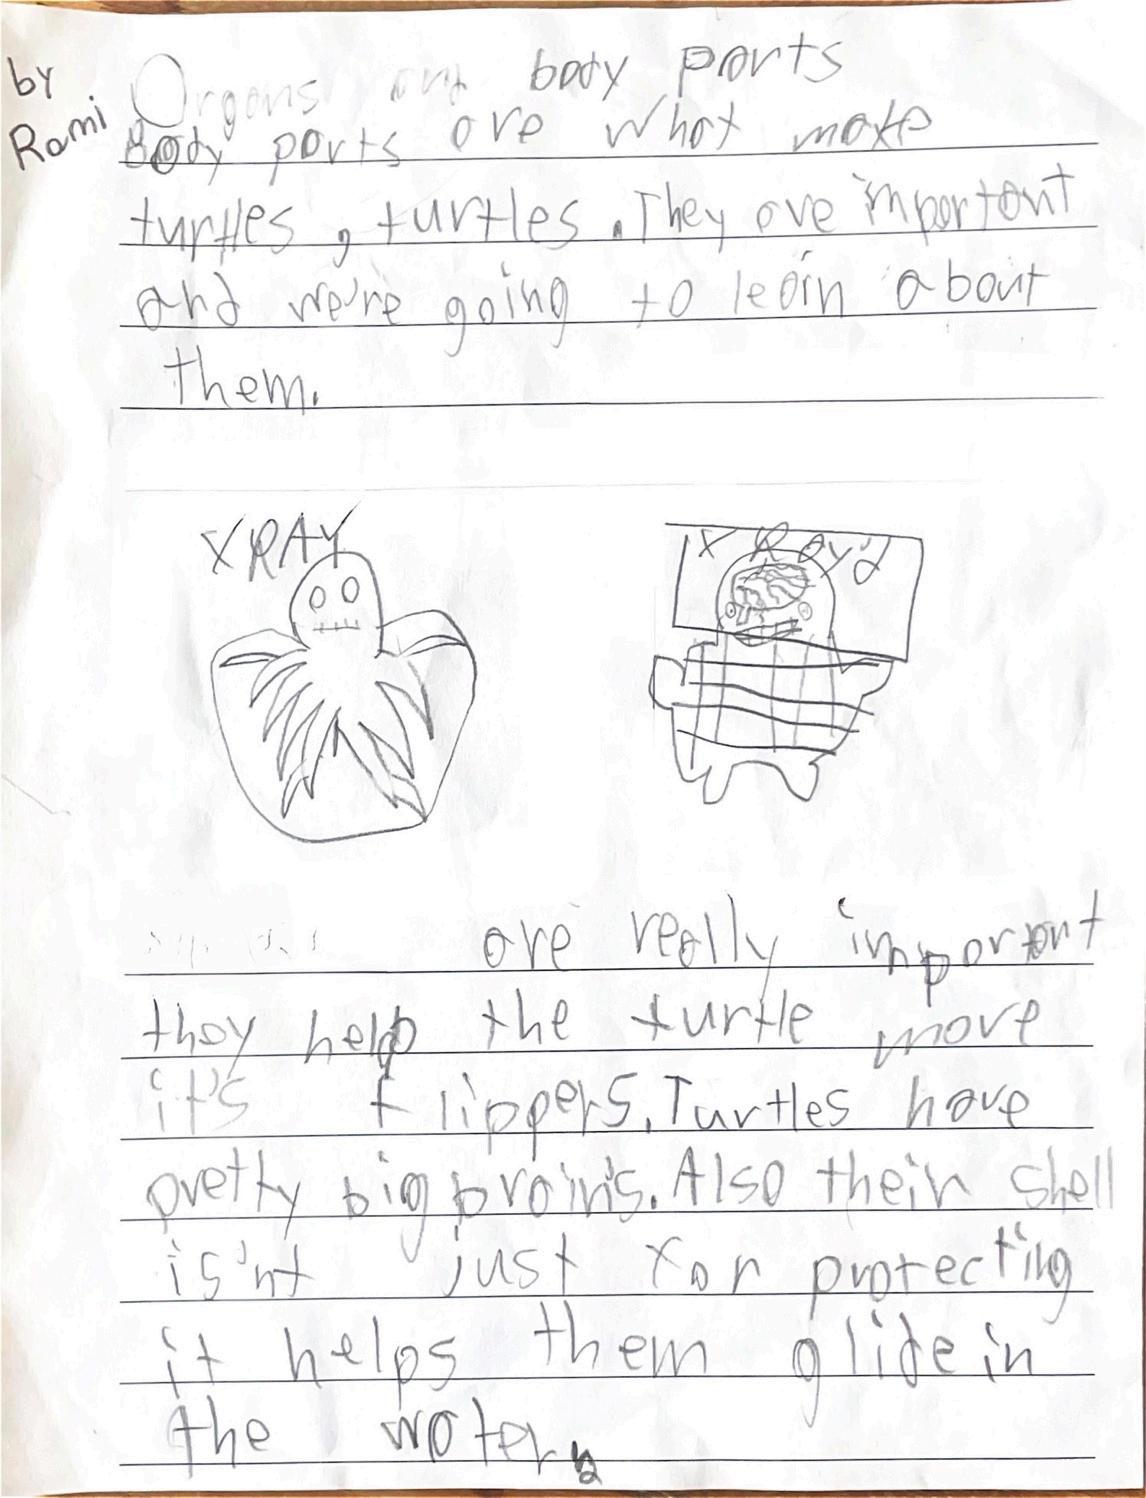 by
Rami
Organs and body parts
Body parts are what make
turtles, turtles. They are important
and we're going to learn about
them.
XRAY
X Ray'd
are really important
they help the turtle move
it's flippers. Turtles have
pretty big brain's. Also their shell
is'nt just for protecting
it helps them glide in
the water.